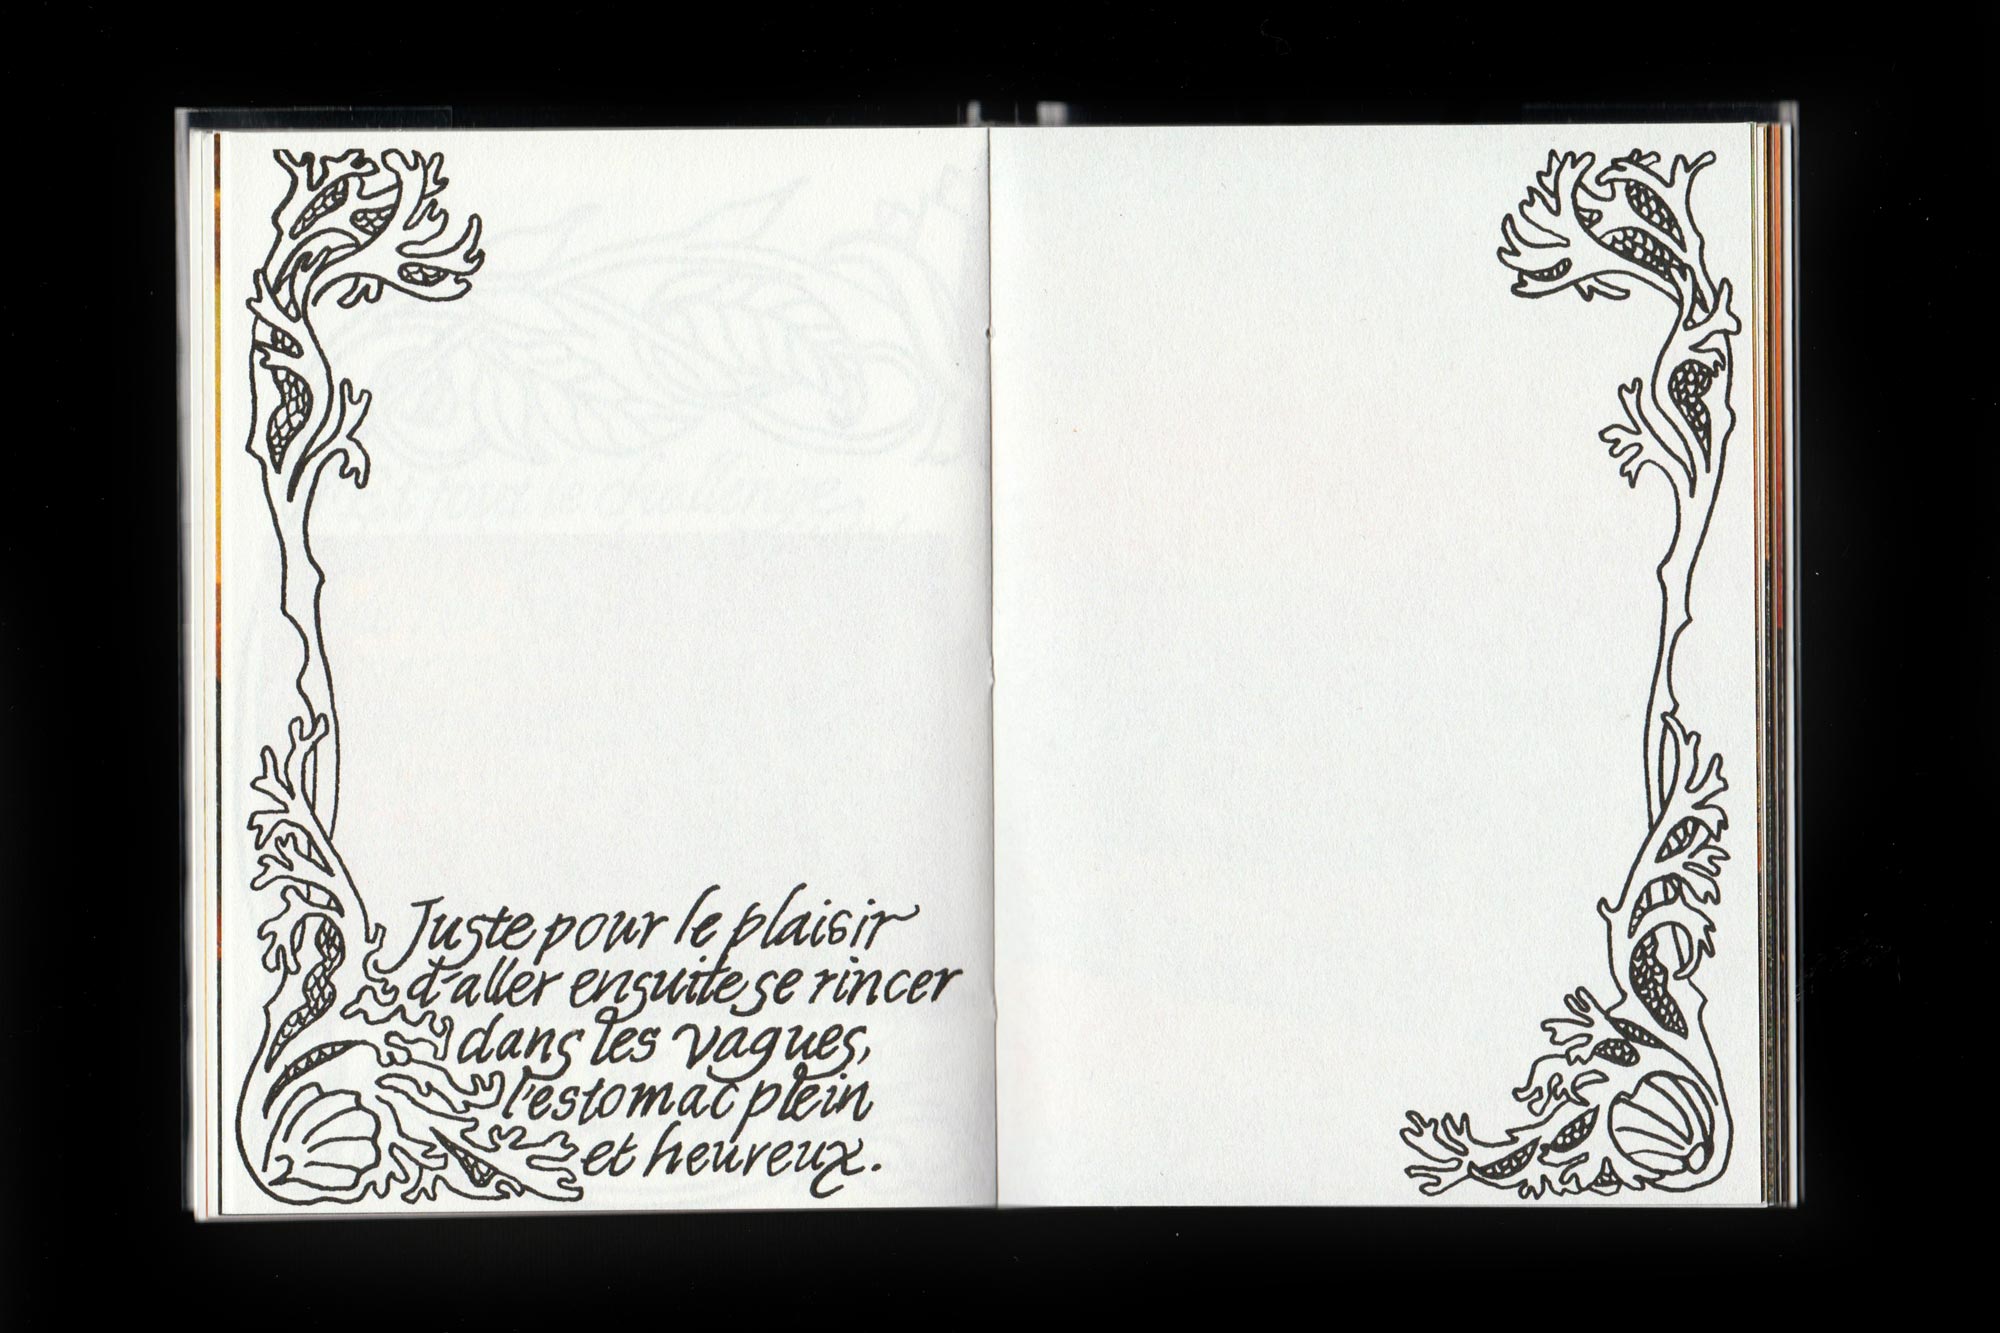 Et pour le challenge,
Juste pour le plaisir
d'aller ensuite se rincer
dans les vagues,
l'estomac plein
et heureux.